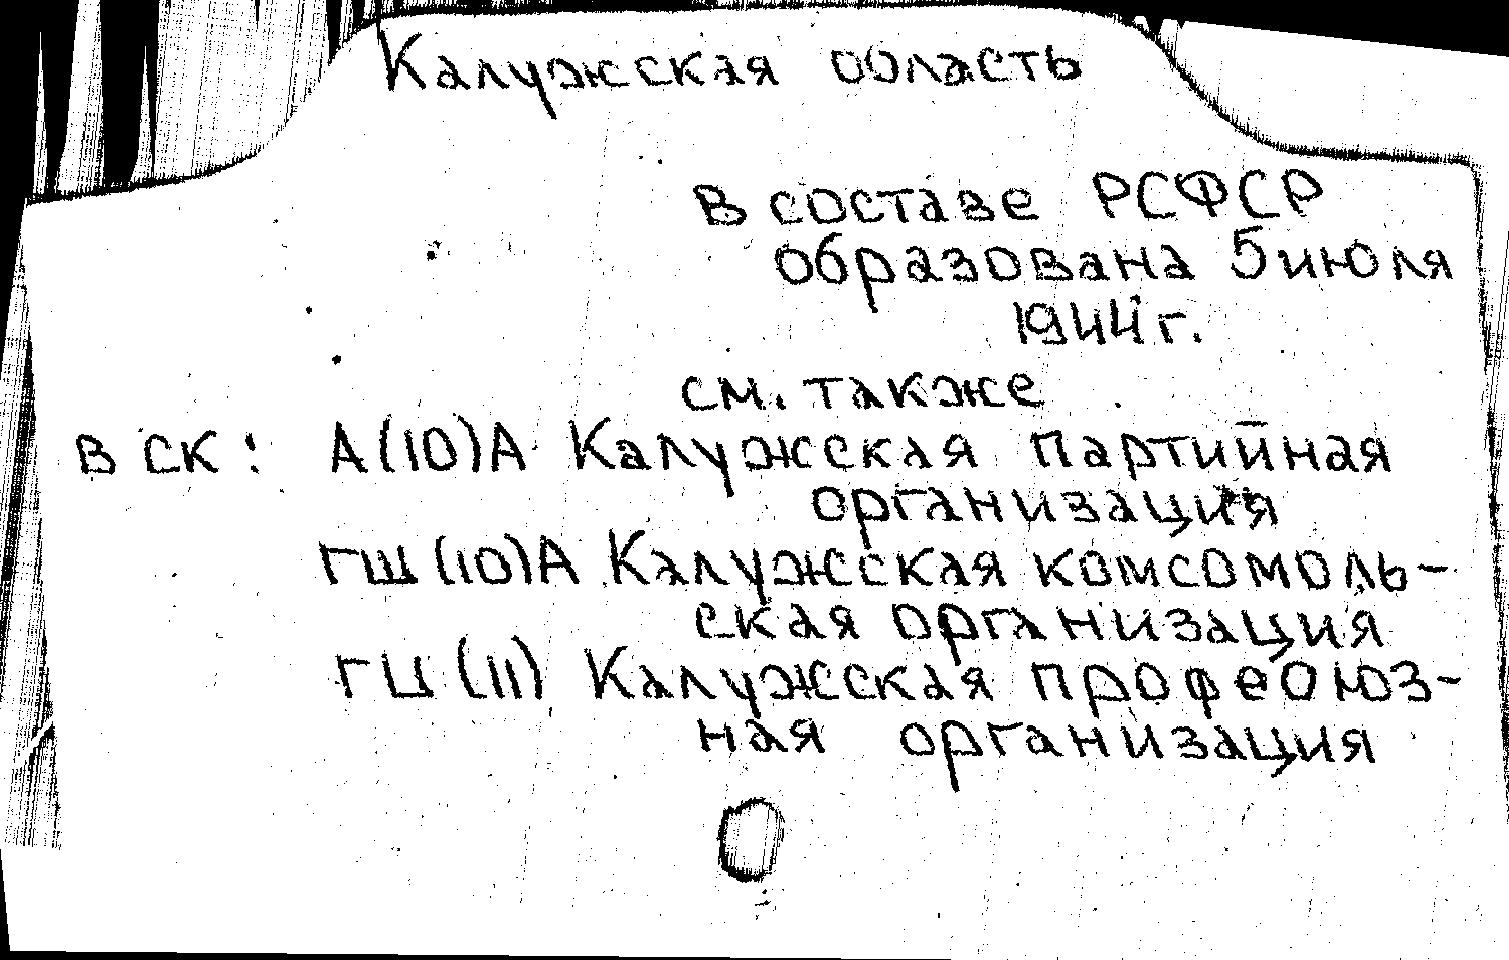 Калужская область
В составе РСФСР
образована 5 июля
1944 г.
см. также
в СК: А(10)А Калужская партийная
организация
ГШ(10)А Калужская комсомоль-
ская организация
ГЦ(11) Калужская профсоюз-
ная организация